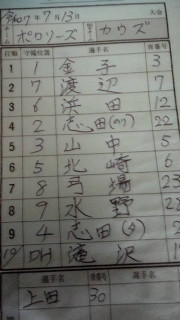 令和7年7月13日 大会
チーム名 ポロリーズ カウズ
打順 守備位置 選手名 背番号
1 金子 3
2 7 渡辺 7
3 6 浜田 12
4 2 志田(カツ) 22
5 3 山中 5
6 5 北崎 6
7 8 弓場 23
8 9 水野
9 4 志田(タ)
10 DH 滝沢
選手名 背番号 選手名
上田 30